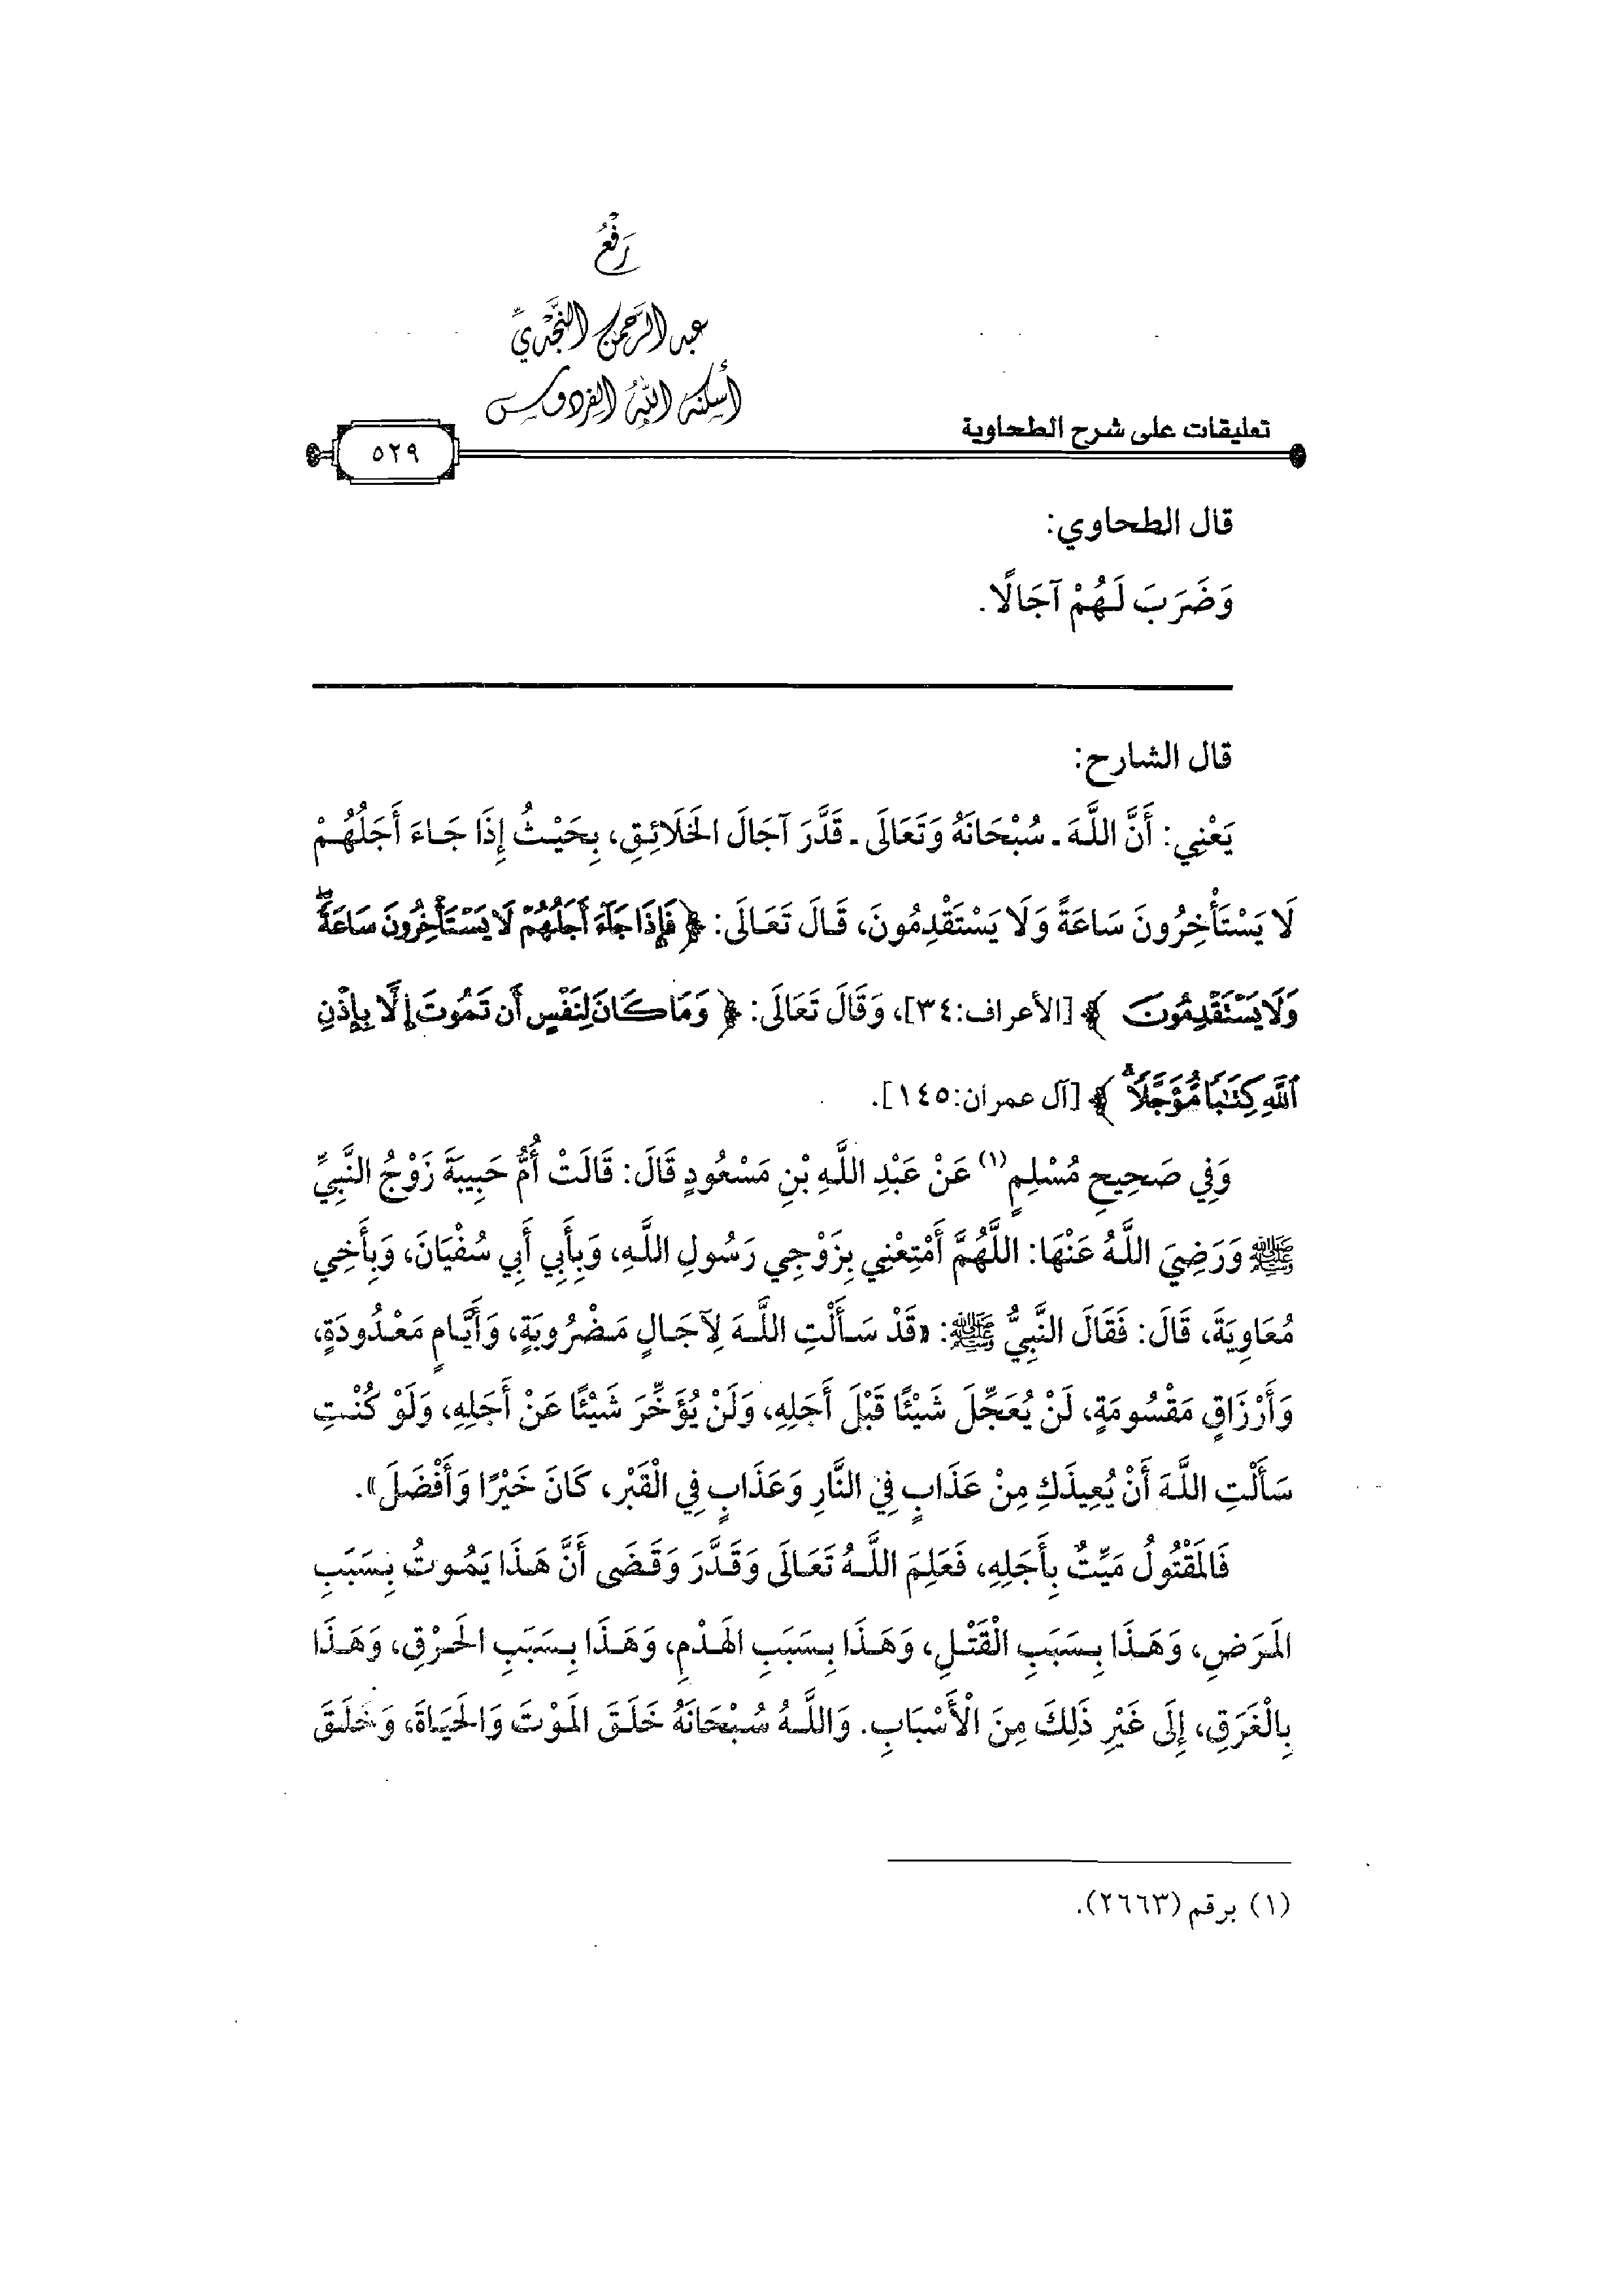 رَفْعُ
عبد الرحمن النجدي
أسكنه الله الفردوس
تعليقات على شرح الطحاوية
٥٢٩
قال الطحاوي:
وَضَرَبَ لَهُمْ آجَالًا.
قال الشارح:
يَعْنِي: أَنَّ اللَّهَ ـ سُبْحَانَهُ وَتَعَالَى ـ قَدَّرَ آجَالَ الخَلَائِقِ، بِحَيْثُ إِذَا جَاءَ أَجَلُهُمْ
لَا يَسْتَأْخِرُونَ سَاعَةً وَلَا يَسْتَقْدِمُونَ، قَالَ تَعَالَى: ﴿فَإِذَا جَآءَ أَجَلُهُمْ لَا يَسْتَأْخِرُونَ سَاعَةً ۖ
وَلَا يَسْتَقْدِمُونَ ﴾ [الأعراف:٣٤]، وَقَالَ تَعَالَى: ﴿وَمَا كَانَ لِنَفْسٍ أَن تَمُوتَ إِلَّا بِإِذْنِ
ٱللَّهِ كِتَٰبًا مُّؤَجَّلًا ۗ﴾ [آل عمران:١٤٥].
وَفِي صَحِيحِ مُسْلِمٍ(١) عَنْ عَبْدِ اللَّهِ بْنِ مَسْعُودٍ قَالَ: قَالَتْ أُمُّ حَبِيبَةَ زَوْجُ النَّبِيِّ
ﷺ وَرَضِيَ اللَّهُ عَنْهَا: اللَّهُمَّ أَمْتِعْنِي بِزَوْجِي رَسُولِ اللَّهِ، وَبِأَبِي أَبِي سُفْيَانَ، وَبِأَخِي
مُعَاوِيَةَ، قَالَ: فَقَالَ النَّبِيُّ ﷺ: «قَدْ سَأَلْتِ اللَّهَ لِآجَالٍ مَضْرُوبَةٍ، وَأَيَّامٍ مَعْدُودَةٍ،
وَأَرْزَاقٍ مَقْسُومَةٍ، لَنْ يُعَجِّلَ شَيْئًا قَبْلَ أَجَلِهِ، وَلَنْ يُؤَخِّرَ شَيْئًا عَنْ أَجَلِهِ، وَلَوْ كُنْتِ
سَأَلْتِ اللَّهَ أَنْ يُعِيذَكِ مِنْ عَذَابٍ فِي النَّارِ وَعَذَابٍ فِي الْقَبْرِ، كَانَ خَيْرًا وَأَفْضَلَ».
فَالمَقْتُولُ مَيِّتٌ بِأَجَلِهِ، فَعَلِمَ اللَّهُ تَعَالَى وَقَدَّرَ وَقَضَى أَنَّ هَذَا يَمُوتُ بِسَبَبِ
المَرَضِ، وَهَذَا بِسَبَبِ الْقَتْلِ، وَهَذَا بِسَبَبِ الهَدْمِ، وَهَذَا بِسَبَبِ الحَرْقِ، وَهَذَا
بِالْغَرَقِ، إِلَى غَيْرِ ذَلِكَ مِنَ الْأَسْبَابِ. وَاللَّهُ سُبْحَانَهُ خَلَقَ المَوْتَ وَالحَيَاةَ، وَخَلَقَ
(١) برقم (٢٦٦٣).